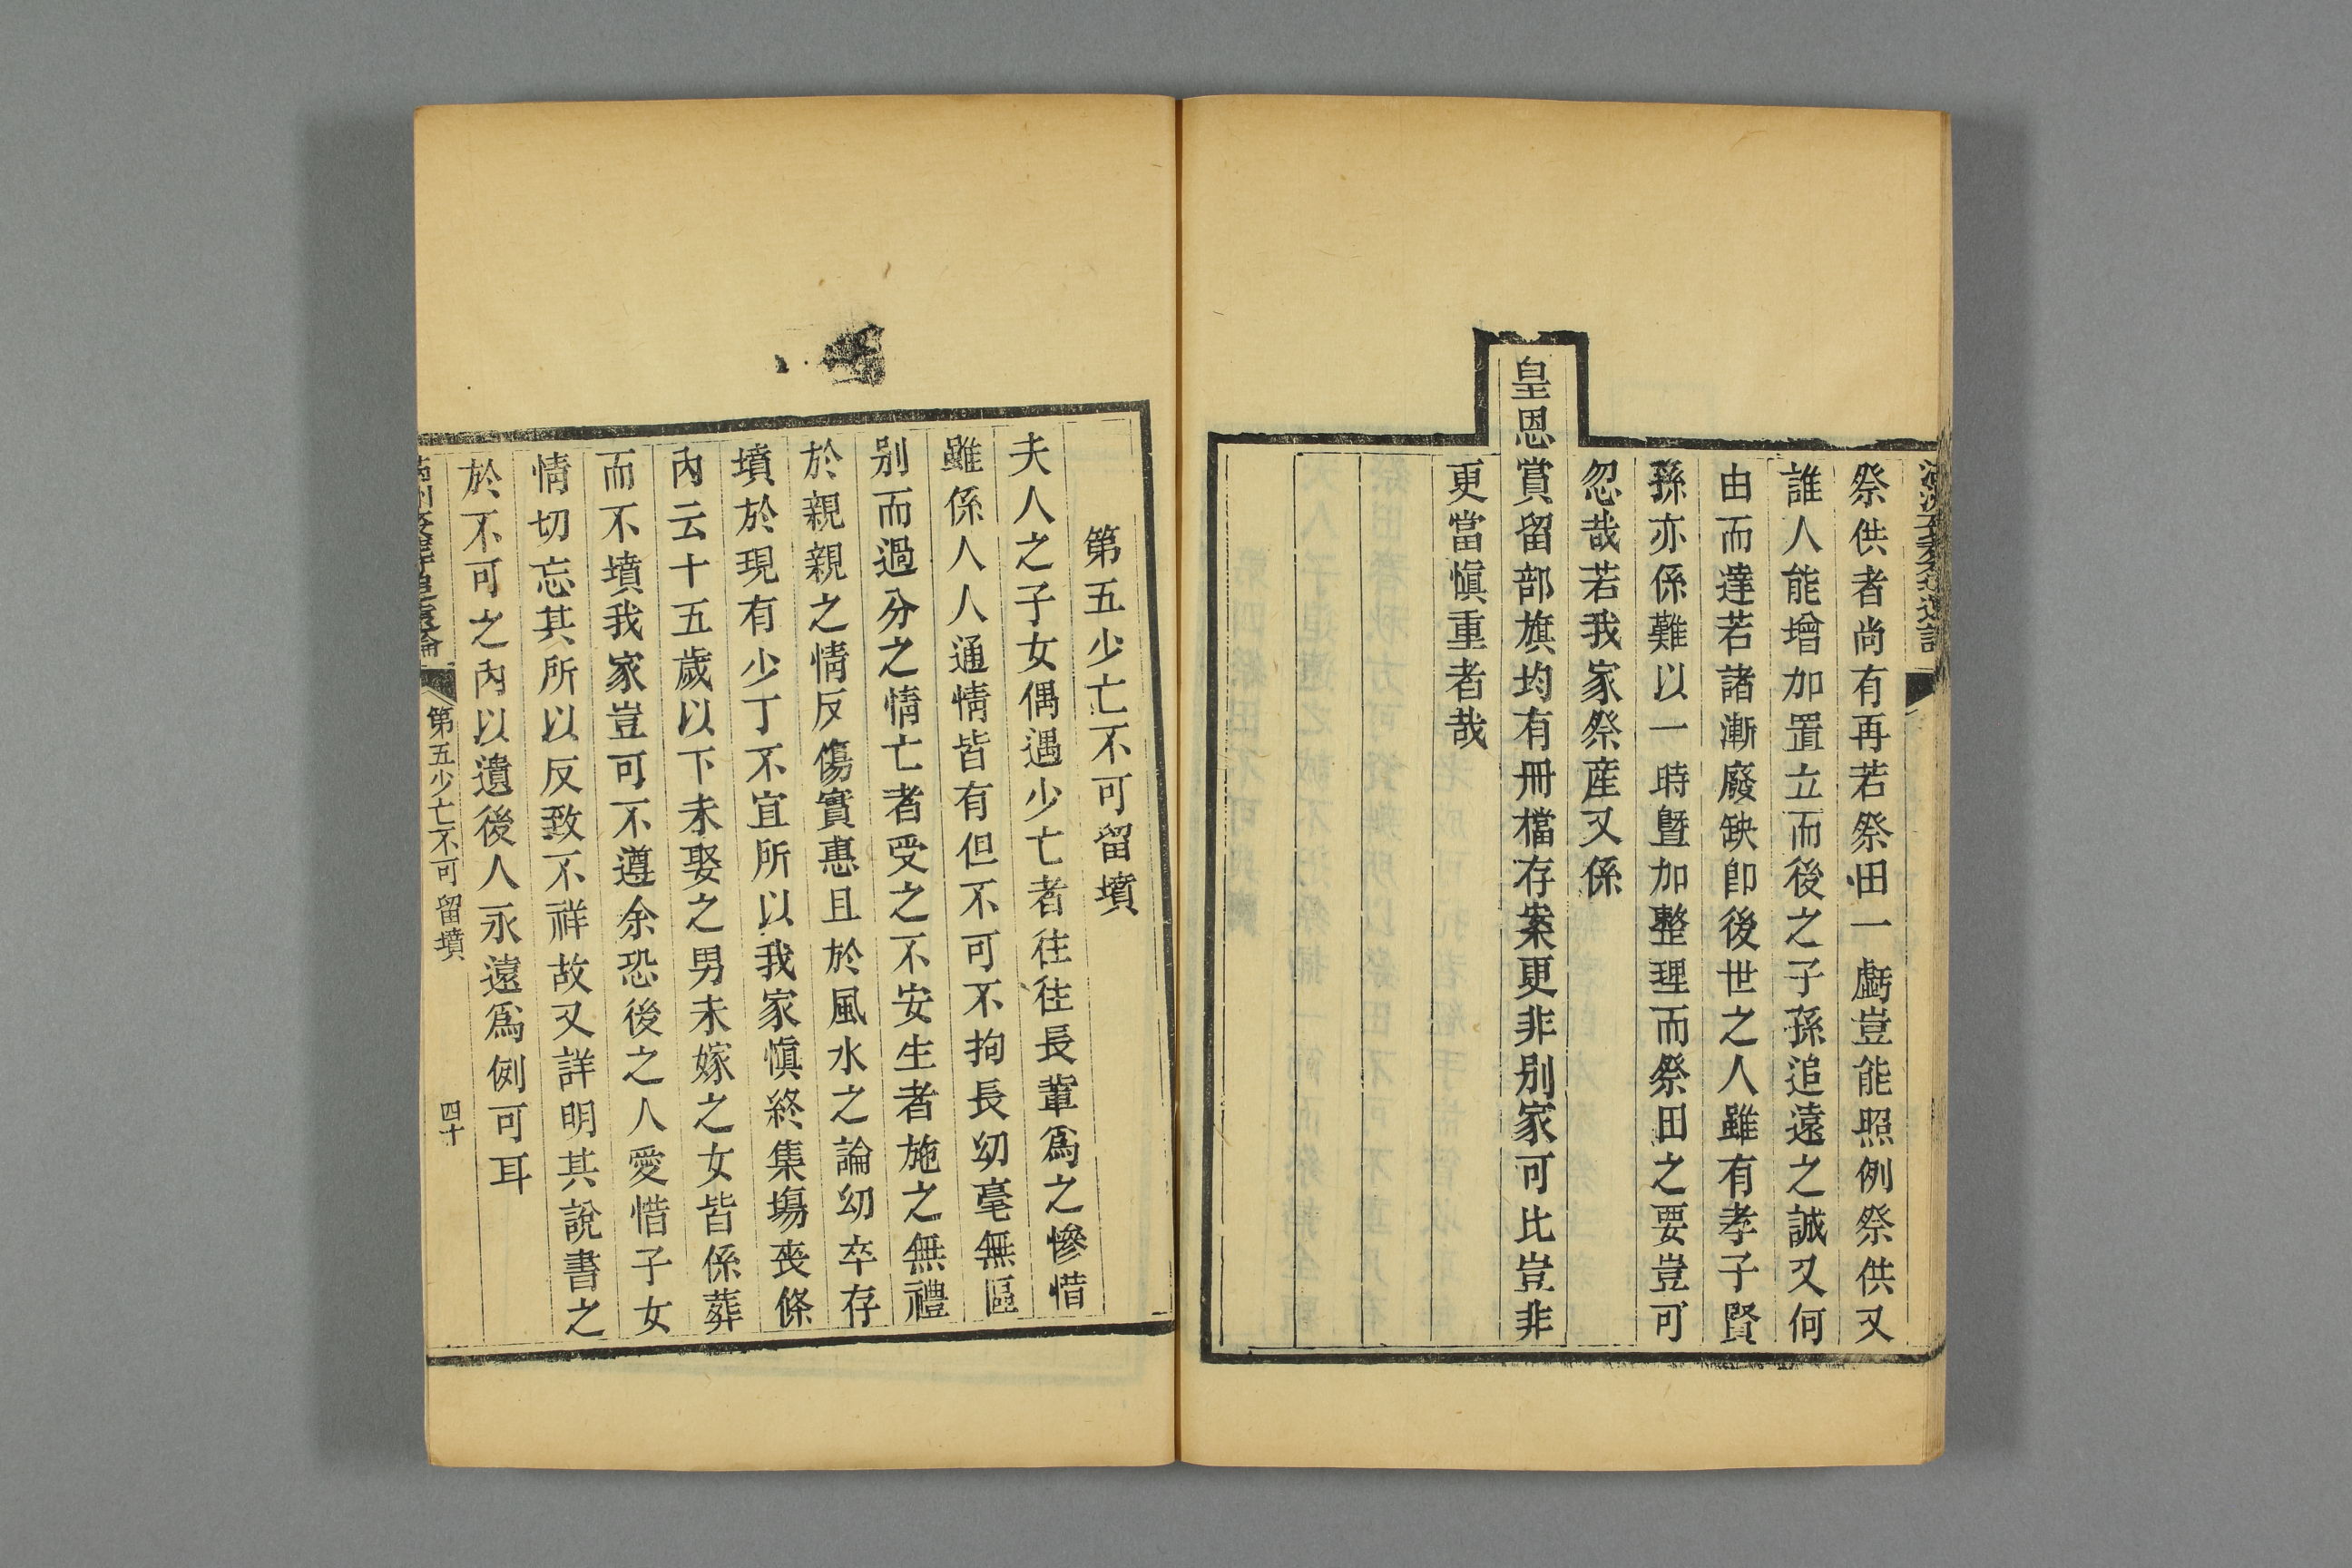 祭供者尚有再若祭田一虧豈能照例祭供又
誰人能增加置立而後之子孫追遠之誠又何
由而達若諸漸廢缺卽後世之人雖有孝子賢
孫亦係難以一時曁加整理而祭田之要豈可
忽哉若我家祭產又係
皇恩賞留部旗均有冊檔存案更非別家可比豈非
更當愼重者哉
第五少亡不可留墳
夫人之子女偶遇少亡者往往長輩爲之慘惜
雖係人人通情皆有但不可不拘長幼毫無區
別而過分之情亡者受之不安生者施之無禮
於親親之情反傷實惠且於風水之論幼卒存
墳於現有少丁不宜所以我家愼終集塲喪條
內云十五歲以下未娶之男未嫁之女皆係葬
而不墳我家豈可不遵余恐後之人愛惜子女
情切忘其所以反致不祥故又詳明其說書之
於不可之內以遺後人永遠爲例可耳
第五少亡不可留墳
四十